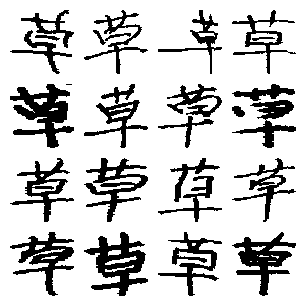 草草草草
草草草草
草草草草
草草草草